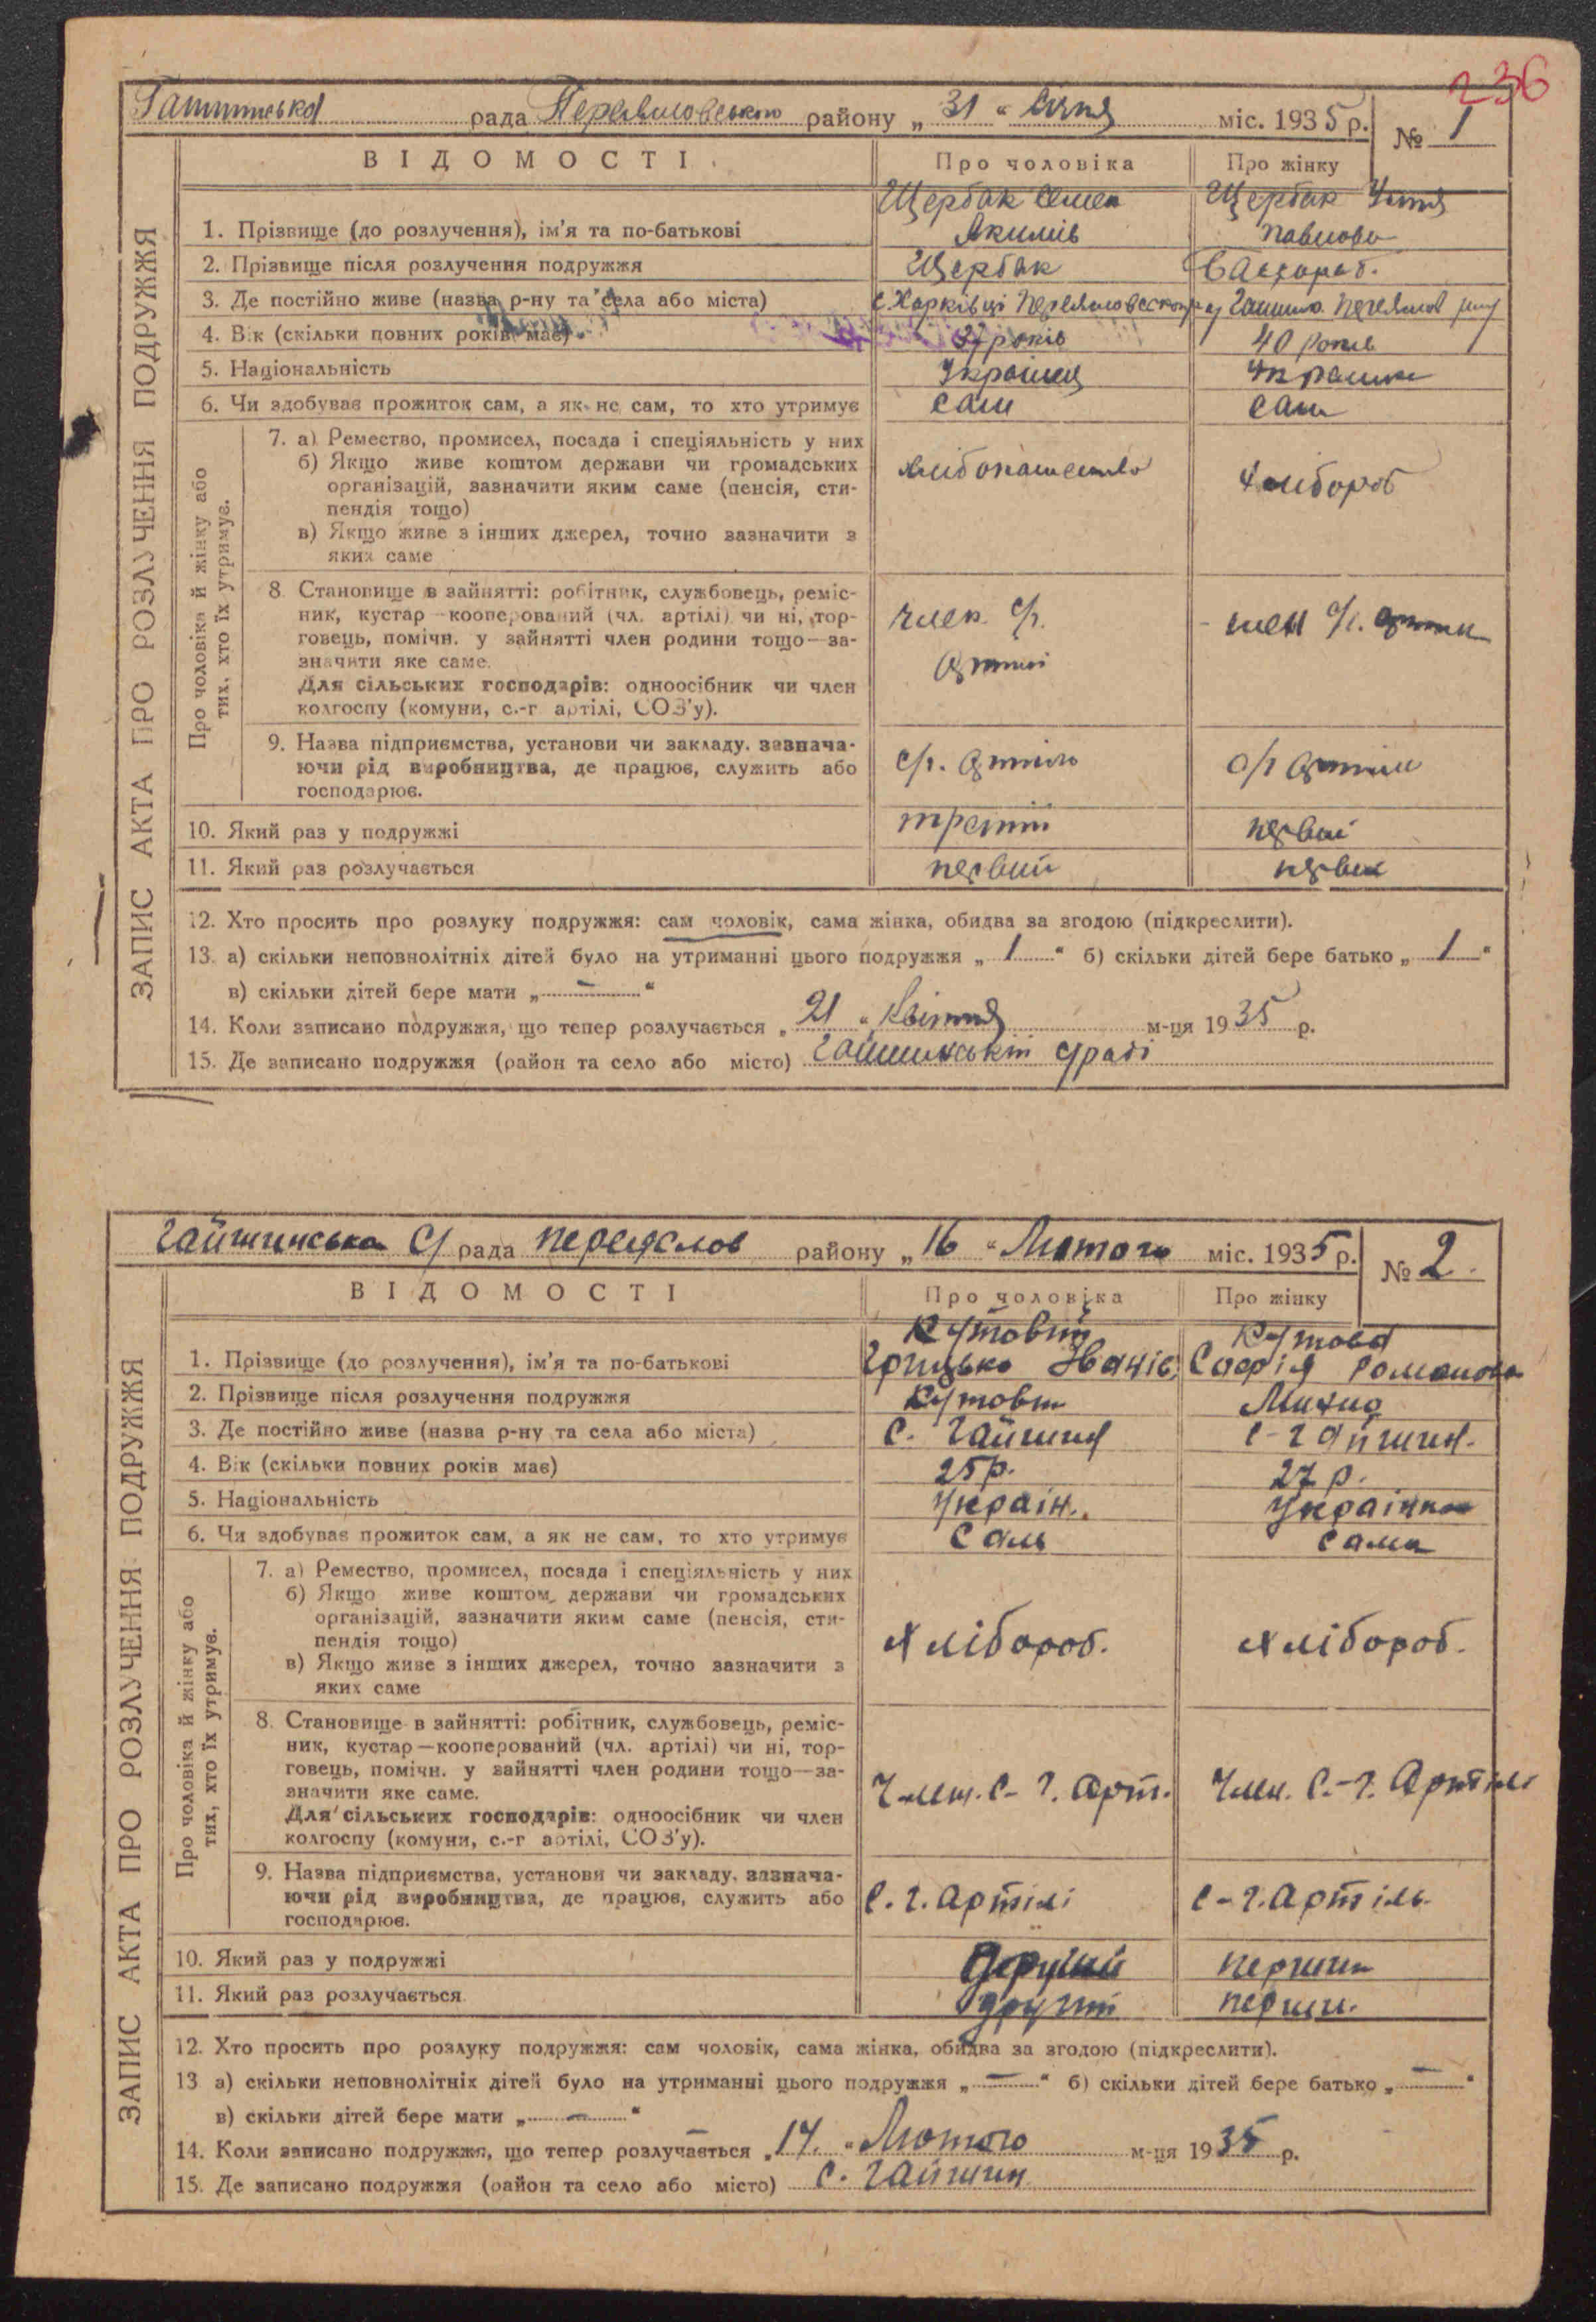 236
рада Переяславського району „ 31 “ Січня міс. 1935 р. № 1
ВІДОМОСТІ Про чоловіка Про жінку
Щербак Семен Щербак
1. Прізвище (до розлучення), ім'я та по-батькові Якимів Павлова
2. Прізвище після розлучення подружжя Щербак
3. Де постійно живе (назва р-ну та села або міста) с Харківці
4. Вік (скільки повних років має) 37 років 40 років
5. Національність Українец Українка
6. Чи здобуває прожиток сам, а як не сам, то хто утримує сам сам
Про чоловіка й жінку або тих, хто їх утримує.
7. а) Ремество, промисел, посада і спеціяльність у них
б) Якщо живе коштом держави чи громадських
організацій, зазначити яким саме (пенсія, сти-
пендія тощо)
в) Якщо живе з інших джерел, точно зазначити з
яких саме
хлібопашество хлібороб
8. Становище в зайнятті: робітник, службовець, реміс-
ник, кустар—кооперований (чл. артілі) чи ні, тор-
говець, помічн. у зайнятті член родини тощо—за-
значити яке саме.
Для сільських господарів: одноосібник чи член
колгоспу (комуни, с.-г. артілі, СОЗ'у).
член с/г. артілі член с/г. артіли
9. Назва підприємства, установи чи закладу, зазнача-
ючи рід виробництва, де працює, служить або
господарює.
с/г. артіль с/г артіли
10. Який раз у подружжі третій первий
11. Який раз розлучається первий
12. Хто просить про розлуку подружжя: сам чоловік, сама жінка, обидва за згодою (підкреслити).
13. а) скільки неповнолітніх дітей було на утриманні цього подружжя „ 1 “ б) скільки дітей бере батько „ 1 “
в) скільки дітей бере мати „ — “
14. Коли записано подружжя, що тепер розлучається „ 21 “ Квітня м-ця 1935 р.
15. Де записано подружжя (район та село або місто) Гайшинській с/раді
ЗАПИС АКТА ПРО РОЗЛУЧЕННЯ ПОДРУЖЖЯ
Гайшинська с/ рада Переяслов району „ 16 “ Лютого міс. 1935 р. № 2.
ВІДОМОСТІ Про чоловіка Про жінку
Кутовий Кутова
1. Прізвище (до розлучення), ім'я та по-батькові Грицько Іванів Софія Романова
2. Прізвище після розлучення подружжя Кутовий
3. Де постійно живе (назва р-ну та села або міста) с. Гайшин с-Гайшин.
4. Вік (скільки повних років має) 25 р. 27 р.
5. Національність Україн. Українка
6. Чи здобуває прожиток сам, а як не сам, то хто утримує Сам Сама
Про чоловіка й жінку або тих, хто їх утримує.
7. а) Ремество, промисел, посада і спеціяльність у них
б) Якщо живе коштом держави чи громадських
організацій, зазначити яким саме (пенсія, сти-
пендія тощо)
в) Якщо живе з інших джерел, точно зазначити з
яких саме
Хлібороб. Хлібороб.
8. Становище в зайнятті: робітник, службовець, реміс-
ник, кустар—кооперований (чл. артілі) чи ні, тор-
говець, помічн. у зайнятті член родини тощо—за-
значити яке саме.
Для сільських господарів: одноосібник чи член
колгоспу (комуни, с.-г. артілі, СОЗ'у).
Член. С-г. Арт. Член. С.-г. Артілі
9. Назва підприємства, установи чи закладу, зазнача-
ючи рід виробництва, де працює, служить або
господарює.
С.г. Артілі С-г. Артіль.
10. Який раз у подружжі Другий перший
11. Який раз розлучається другий перши.
12. Хто просить про розлуку подружжя: сам чоловік, сама жінка, обидва за згодою (підкреслити).
13. а) скільки неповнолітніх дітей було на утриманні цього подружжя „ — “ б) скільки дітей бере батько „ — “
в) скільки дітей бере мати „ — “
14. Коли записано подружжя, що тепер розлучається „ 17. “ Лютого м-ця 1935 р.
15. Де записано подружжя (район та село або місто) с. Гайшин
ЗАПИС АКТА ПРО РОЗЛУЧЕННЯ ПОДРУЖЖЯ